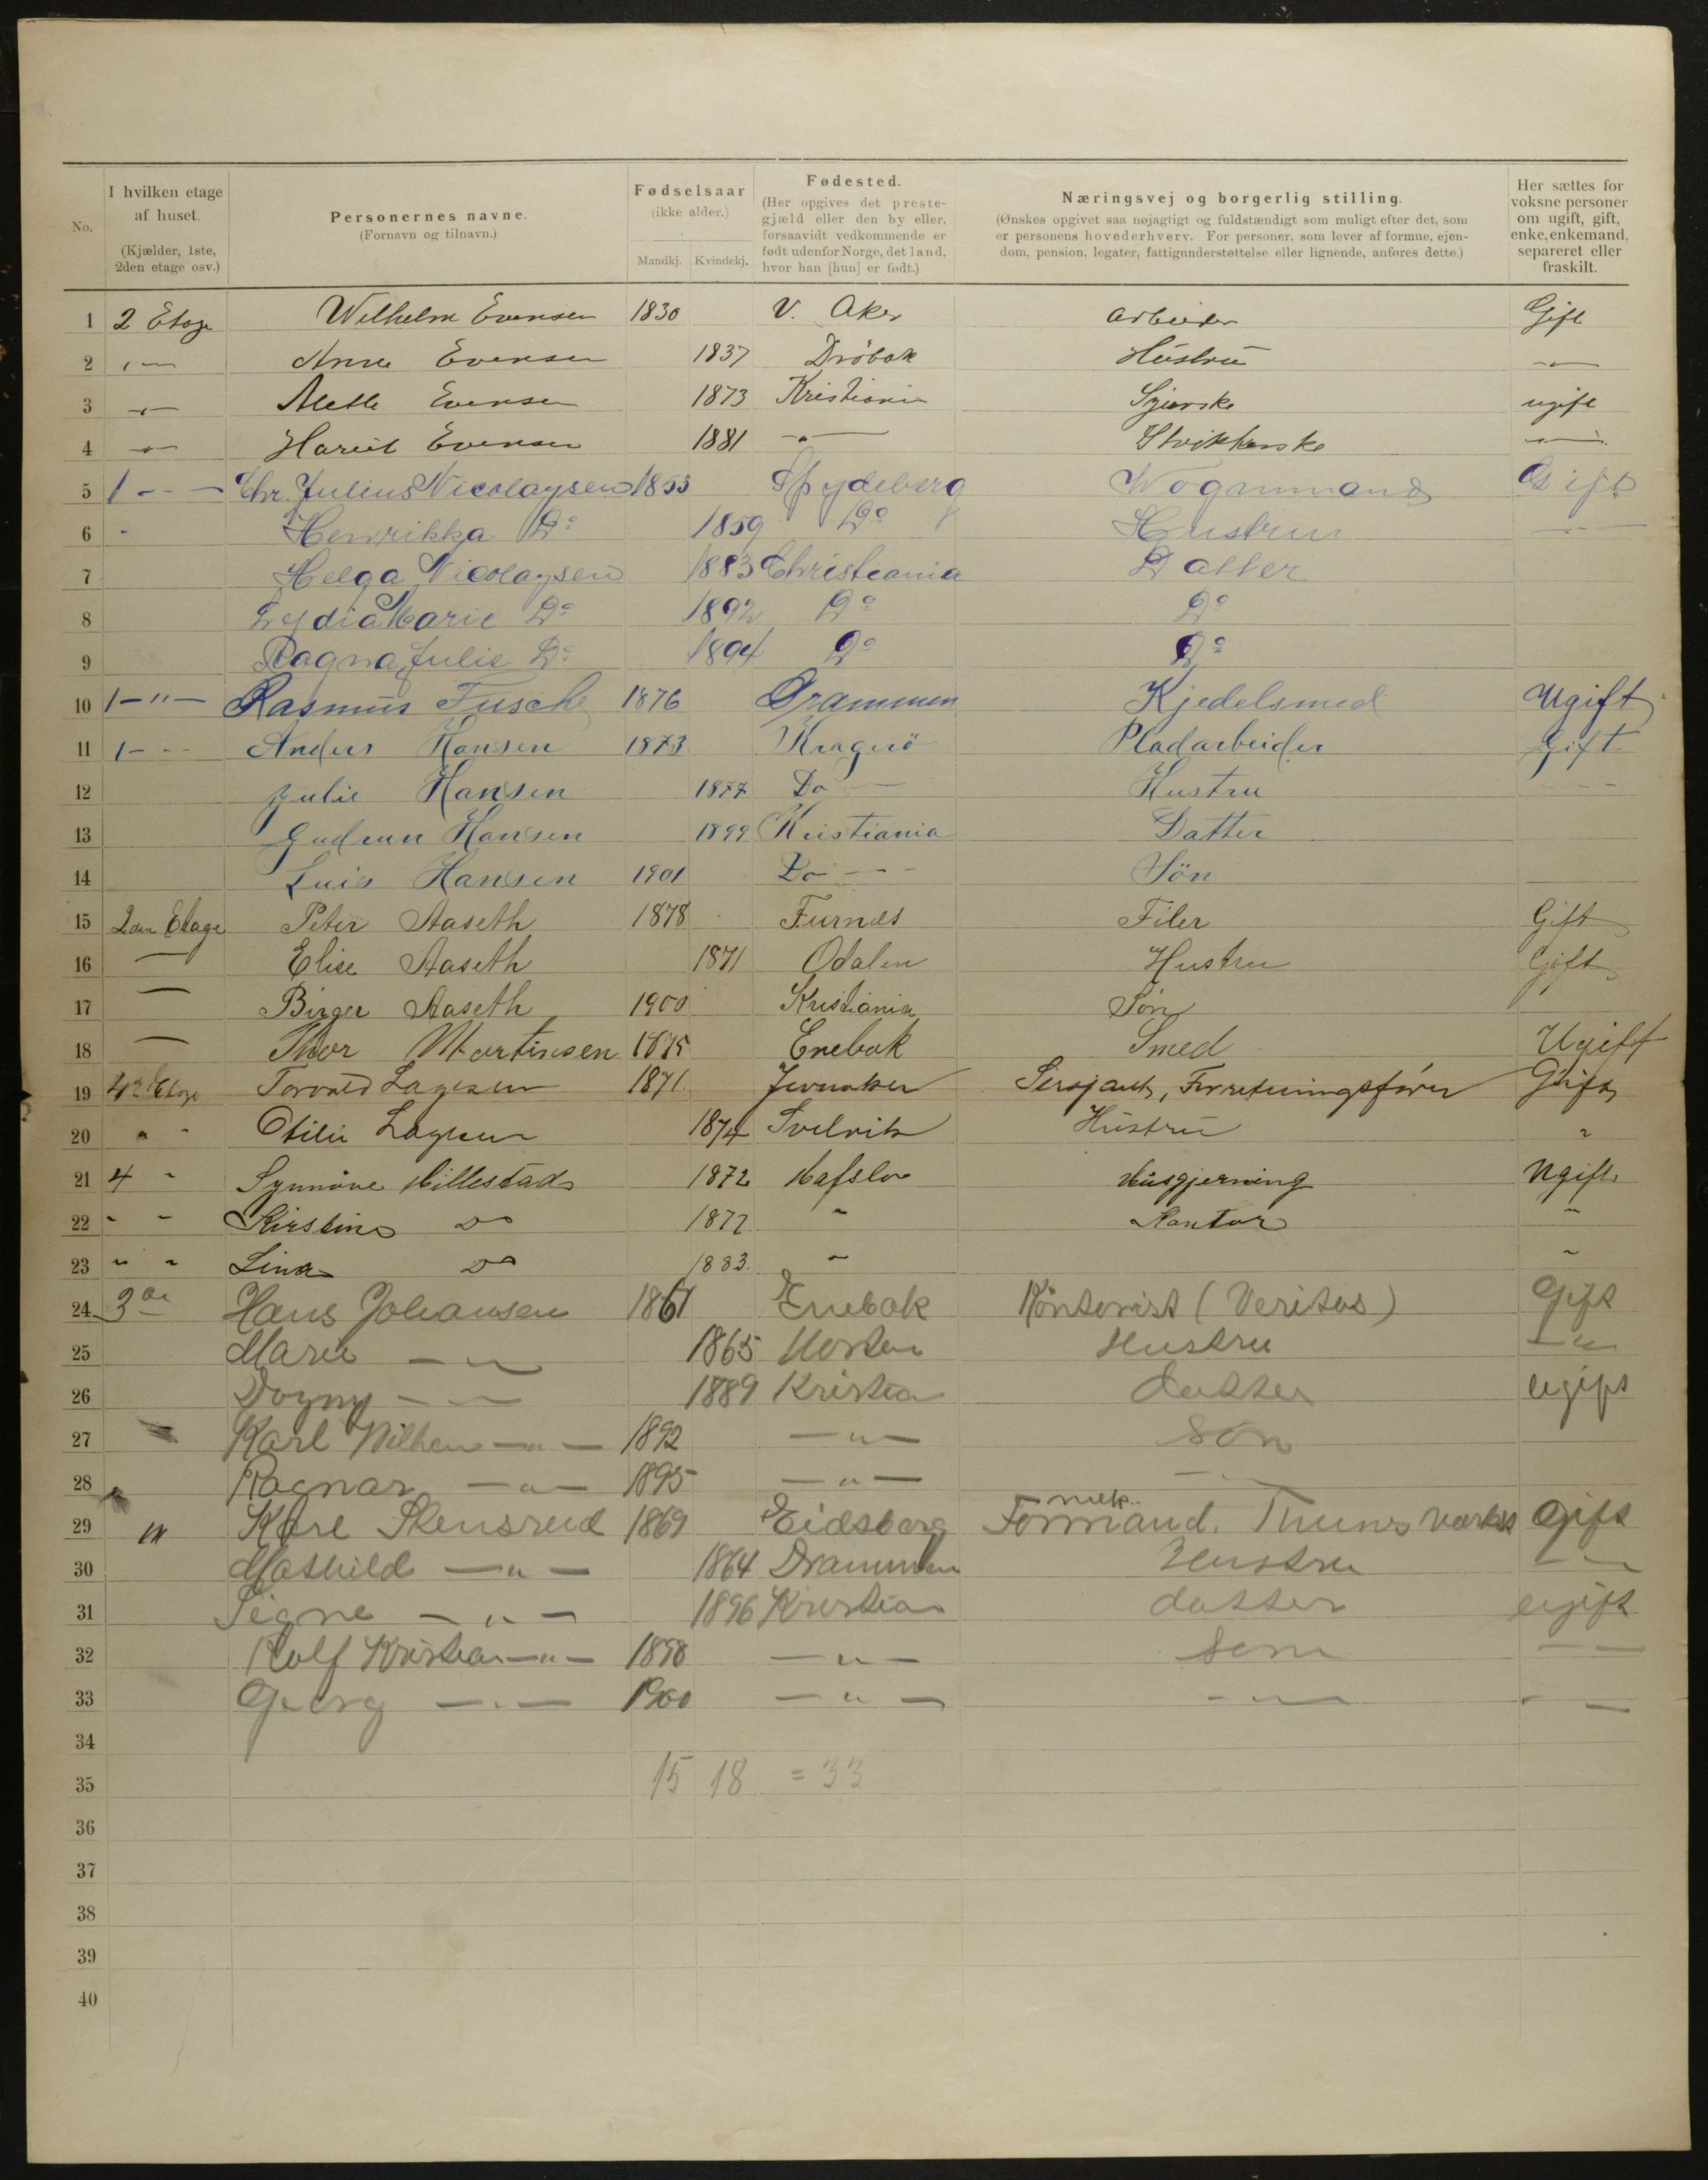 No.
I hvilken etage af huset. (Kjælder, 1ste, 2den etage osv.)
Personernes navne. (Fornavn og tilnavn.)
Fødselsaar (ikke alder.) Mandkj. Kvindekj.
Fødested. (Her opgives det prestegjæld eller den by eller, forsaavidt vedkommende er født udenfor Norge, det land, hvor han [hun] er født.)
Næringsvej og borgerlig stilling. (Ønskes opgivet saa nøjagtigt og fuldstændigt som muligt efter det, som er personens hovederhverv. For personer, som lever af formue, ejendom, pension, legater, fattigunderstøttelse eller lignende, anføres dette.)
Her sættes for voksne personer om ugift, gift, enke, enkemand, separeret eller fraskilt.
1 2 Etage Wilhelm Evensen 1830 V. Aker Arbeider Gift
2 — " — Anna Evensen 1837 Dröbak Hustru — " —
3 — " — Alette Evensen 1873 Kristiania Syerske ugift
4 — " — Evensen 1881 — " — Strikkerske — " —
5 1 - - - Chr. Julius Nicolaysen 1853 Spydeberg Vognmand Gift
6 - Henrikka Do 1859 Do Hustru — " —
7 Helga Nicolaysen 1883 Christiania Datter
8 Lydia Marie Do 1892 Do Do
9 Ragna Julie Do 1894 Do Do
10 1 - " - Rasmus Fusche 1876 Drammen Kjedelsmed Ugift
11 1 - - - Anders Hansen 1873 Kragerö Pladarbeider Gift
12 Julie Hansen 1877 Do — Hustru - - -
13 Gudrun Hansen 1899 Kristiania Datter
14 Luis Hansen 1901 Do - - - Sön
15 2den Etage Peter Aaseth 1878 Furnes Filer Gift
16 — Elise Aaseth 1871 Odalen Hustru Gift
17 — Birger Aaseth 1900 Kristiania Søn
18 — Thor Martinsen 1875 Enebak Smed Ugift
19 4de Etage Torvald Lagesen 1871 Jevnaker Sersjant, Forretningsfører Gift
20 " " Otilie Lagesen 1874 Svelvik Hustru "
21 4 " Synnöve Hillestad 1872 Hafslo Husgjerning Ugift
22 " " Kirstine Do 1877 " Kontor "
23 " " Lina Do 1883. " "
24 3die Hans Johansen 1861 Enebak Kontorist (Veritas) Gift
25 Marie — " — 1865 Horten Hustru — " —
26 Dagny — " — 1889 Kristia datter ugift
27 Karl Wilhem — " — 1892 — " — Søn
28 Ragnar — " — 1895 — " — — " —
29 " Kare Stensrud 1869 Eidsberg Formand. Thunes mek. værks Gift
30 Mathild — " — 1864 Drammen Hustru — " —
31 Signe — " — 1896 Kristia datter ugift
32 Rolf Kristian — " — 1898 — " — Søn — —
33 Georg — " — 1900 — " — — " — — —
34
35 15 18 = 33
36
37
38
39
40